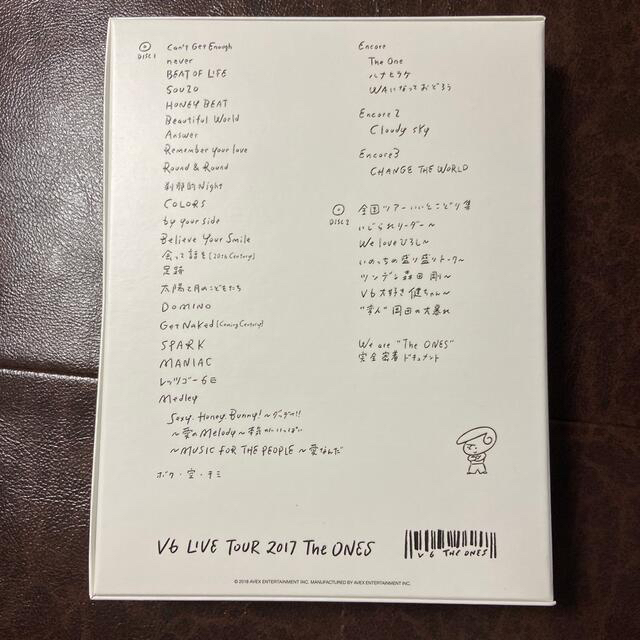 DISC1
Can't Get Enough
never
BEAT OF LIFE
SOUZO
HONEY BEAT
Beautiful World
Answer
Remember your love
Round & Round
刹那的Night
COLORS
by your side
Believe Your Smile
会って話を[20th Century]
足跡
太陽と月のこどもたち
DOMINO
Get Naked [Coming Century]
SPARK
MANIAC
レッツゴー6匹
Medley
Sexy.Honey.Bunny!~グッデイ!!
~愛のMelody~本気がいっぱい
~MUSIC FOR THE PEOPLE~愛なんだ
ボク・空・キミ
Encore
The One
ハナヒラケ
WAになっておどろう
Encore2
Cloudy sky
Encore3
CHANGE THE WORLD
DISC2
全国ツアーいいとこどり集
いじられリーダー~
We love ひろし~
いのっちの盛り盛りトーク~
ツンデレ森田剛~
V6大好き健ちゃん~
"準人"岡田の大暴れ
We are "The ONES"
完全密着ドキュメント
V6 LIVE TOUR 2017 The ONES
V6 THE ONES
© 2018 AVEX ENTERTAINMENT INC. MANUFACTURED BY AVEX ENTERTAINMENT INC.